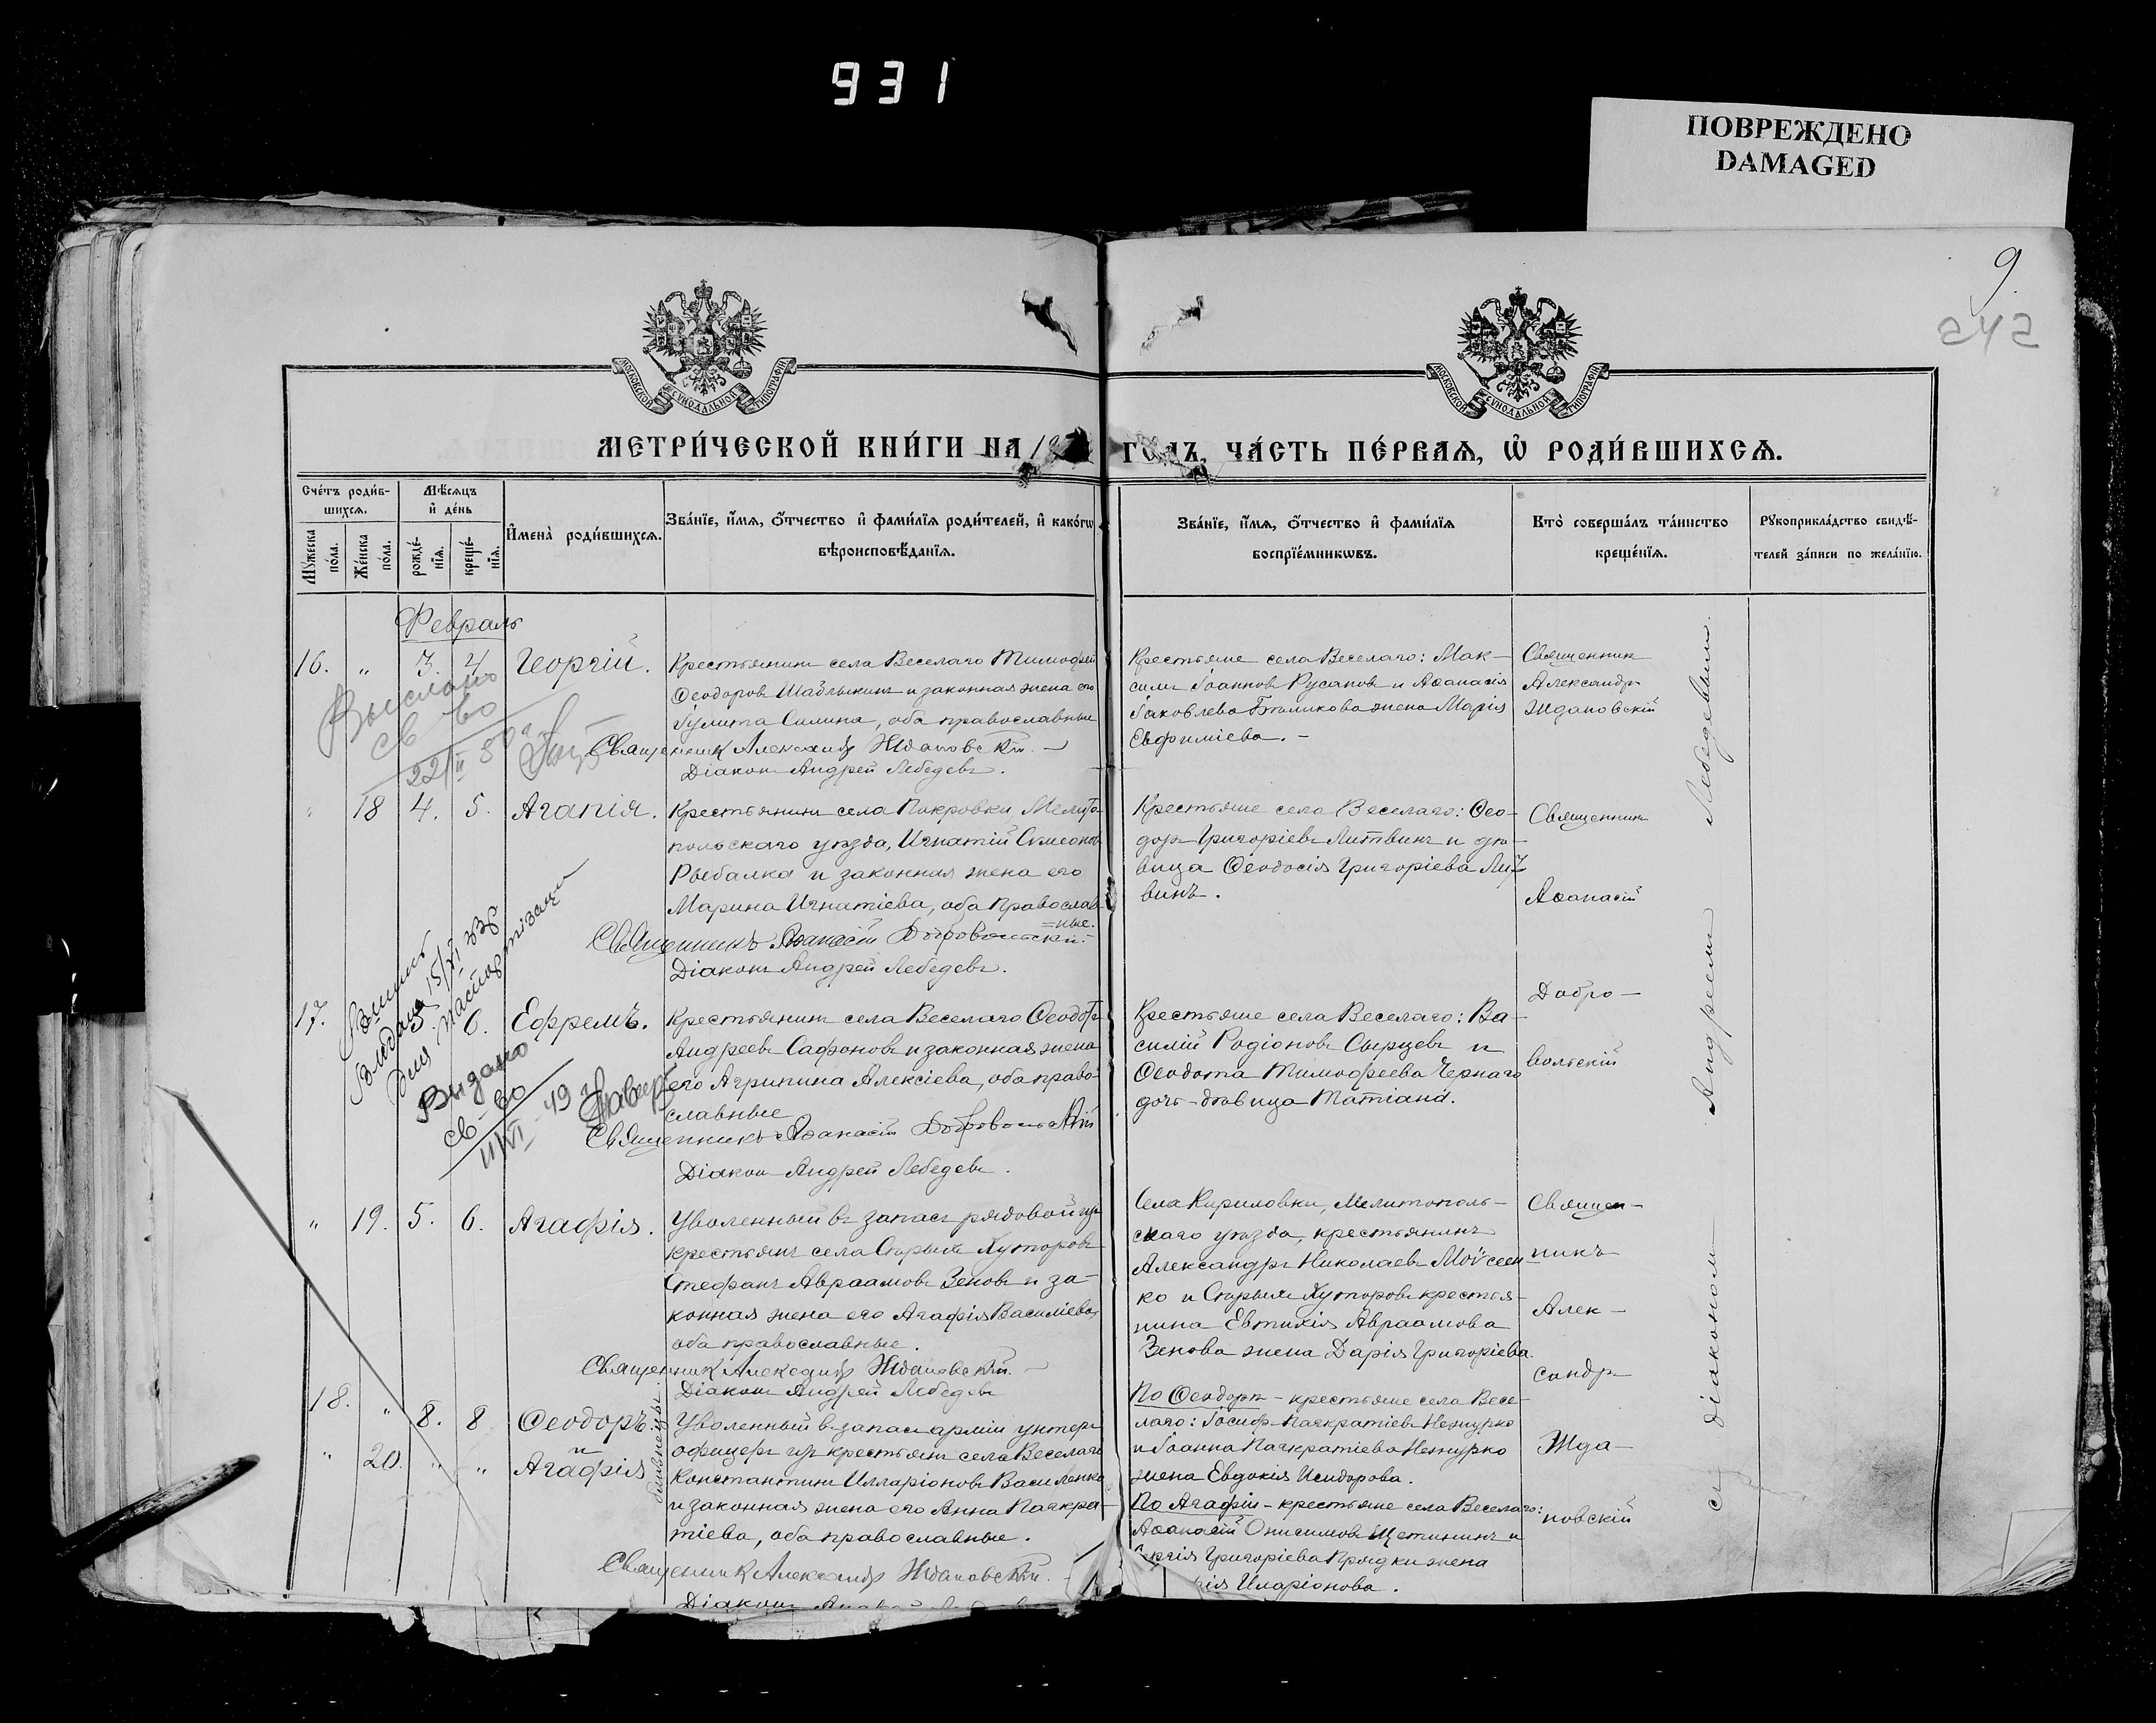 931
ПОВРЕЖДЕНО
DAMAGED
9.
242
МОСКОВСКОЙ СѴНОДАЛЬНОЙ ТИПОГРАФІИ
МОСКОВСКОЙ СѴНОДАЛЬНОЙ ТИПОГРАФІИ
МЕТРИ́ЧЕСКОЙ КНИ́ГИ НА 19 ГОДЪ, ЧА́СТЬ ПЕ́РВАѦ, Ѡ҆ РОДИ́ВШИХСѦ.
Сче́тъ роди́в-
шихсѧ.
Мѣ́сѧцъ
и҆ де́нь
Мꙋ́жеска по́ла.
Же́нска по́ла.
рожде́-
нїѧ.
креще́-
нїѧ.
И҆мена̀ роди́вшихсѧ.
Зва́нїе, и҆́мѧ, ѻ҆́тчество и҆ фами́лїѧ роди́телей, и҆ како́гѡ
вѣроисповѣ́данїѧ.
Зва́нїе, и҆́мѧ, ѻ҆́тчество и҆ фами́лїѧ
воспрїе́мникѡвъ.
Кто̀ соверша́лъ та́инство
креще́нїѧ.
Рꙋкоприкла́дство свидѣ́-
телей за́писи по жела́нїю.
Февраль
16. " 3. 4. Георгій.
Крестьянинъ села Веселаго Тимофей
Ѳеодоровъ Шаблыкинъ и законная жена его
Іулита Силина, оба православные
Священникъ Александръ Ждановскій.
Діаконъ Андрей Лебедевъ.
Крестьяне села Веселаго: Мак-
симъ Іоанновъ Русановъ и Аѳанасія
Іаковлева Бѣликова жена Марія
Евфиміева. –
Священникъ
Александръ
Ждановскій
Выслано
св-во
22/II
" 18 4. 5. Агапія.
Крестьянинъ села Покровки, Мелито-
польскаго уѣзда, Игнатій Симеоновъ
Рыбалка и законная жена его
Марина Игнатіева, оба православ-
=ные.
Священникъ Аѳанасій Добровольскій.
Діаконъ Андрей Лебедевъ.
Крестьяне села Веселаго: Ѳео-
доръ Григоріевъ Литвинъ и дѣ-
вица Ѳеодосія Григоріева Лит-
винъ.
Священникъ
Аѳанасій
Добро-
вольскій
17. 5. 6. Ефремъ.
Крестьянинъ села Веселаго Ѳеодоръ
Андреевъ Сафоновъ и законная жена
его Агрипина Алексіева, оба право-
славные
Священникъ Аѳанасій Добровольскій
Діаконъ Андрей Лебедевъ.
Крестьяне села Веселаго: Ва-
силій Родіоновъ Сырцевъ и
Ѳеодота Тимофеева Чернаго
дочь-дѣвица Татіана.
Выдано
св-во
11/VI 49
" 19. 5. 6. Агафія.
Уволенный въ запасъ рядовой изъ
крестьянъ села Старыхъ Хуторовъ
Стефанъ Авраамовъ Зеновъ и за-
конная жена его Агафія Василіева,
оба православные.
Священникъ Александръ Ждановскій. –
Діаконъ Андрей Лебедевъ
Села Кириловки, Мелитополь-
скаго уѣзда, крестьянинъ
Александръ Николаевъ Мойсеен-
ко и Старыхъ Хуторовъ крестья-
нина Евтихія Авраамова
Зенова жена Дарія Григоріева.
Священ-
никъ
Алек-
сандръ
Жда-
новскій
18. " 8. 8 Ѳеодоръ
и
" 20. " " Агафія
близнецы.
Уволенный въ запасъ арміи унтеръ-
офицеръ изъ крестьянъ села Веселаго
Константинъ Илларіоновъ Василенко
и законная жена его Анна Панкра-
тіева, оба православные.
Священникъ Александръ Ждановскій. –
Діаконъ Андрей Лебедевъ
По Ѳеодоръ – крестьяне села Весе-
лаго: Іосифъ Панкратіевъ Нежурко
и Іоанна Панкратіева Нежурко
жена Евдокія Исидорова.
По Агафіи – крестьяне села Веселаго:
Аѳанасій Онисимовъ Щетининъ и
Григоріева Прядки жена
Иларіонова.
съ діакономъ Андреемъ Лебедевымъ.